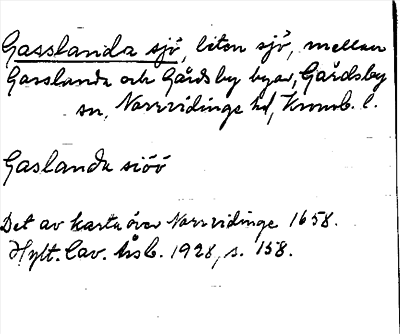 Gasslanda sjö, liten sjö, mellan
Gasslanda och Gårdsby byar, Gårdsby
sn, Norrvidinge hd, Kronob. l.
Gaslanda siöö
Det av karta över Norrvidinge 1658.
Hylt. Cav. Årsb. 1928, s. 158.